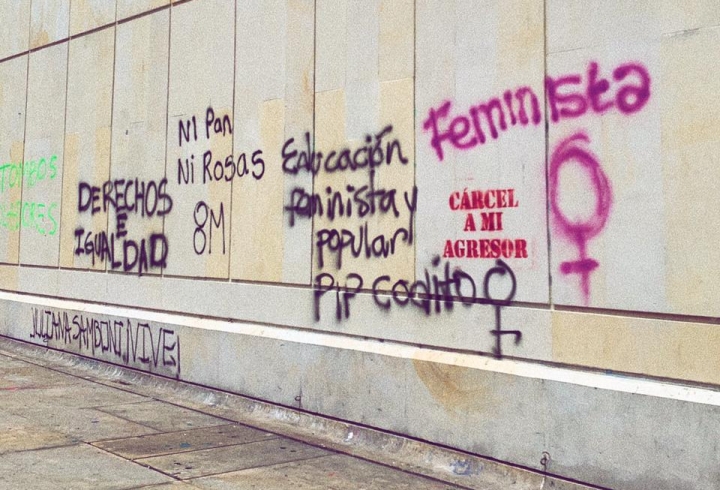 DERECHOS
E
IGUALDAD
Ni Pan
Ni Rosas
8M
Educación
feminista y
popular
PiP Codito
Feminista
CÁRCEL
A MI
AGRESOR
JULIANA SAMBONI VIVE!